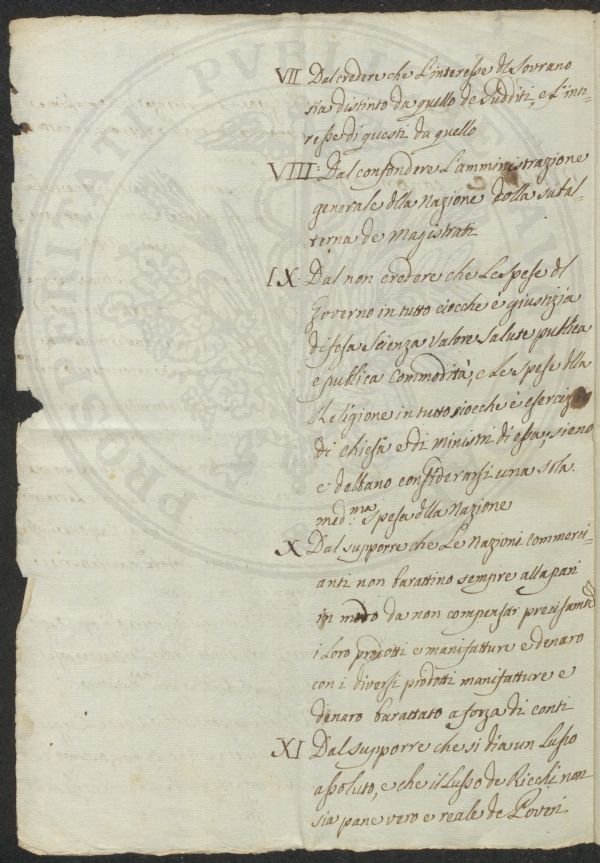 VII Dal credere che L'interesse dl Sovrano
sia distinto da quello de Sudditi, e L'inte-
resse di questi da quello
VIII: Dal confondere L'amministrazione
generale dlla Nazione dalla subal-
terna de Magistrati
IX: Dal non credere che Le Spese dl
Governo in tutto ciocche è giustizia
difesa Scienza Valore Salute publica
e publica Commodità, e Le Spese dlla
Religione in tutto ciocche è esercizio
di chiesa e di ministri di essa, sieno
e debbano considerarsi una sola
med.ma Spesa dlla Nazione
X Dal supporre che Le Nazioni commerci-
anti non barattino sempre alla pari
in modo da non compensar precisamte
i Loro prodotti e manifatture e denaro
con i diversi prodotti manifatture e
denaro barattato a forza di conti
XI Dal supporre che si dia un Lusso
assoluto, e che il Lusso de Ricchi non
sia pane vero e reale de Poveri
PROSPERITATI PUBLICAE